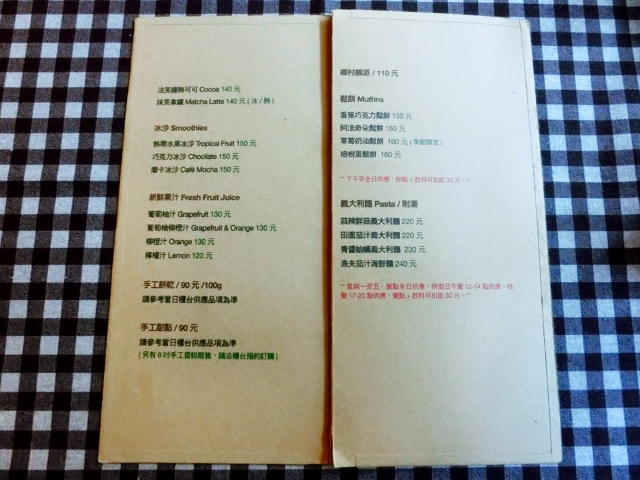 法芙娜熱可可 Cocoa 140 元
抹茶拿鐵 Matcha Latte 140 元 ( 冰 / 熱 )
冰沙 Smoothies
熱帶水果冰沙 Tropical Fruit 150 元
巧克力冰沙 Chocilate 150 元
摩卡冰沙 Café Mocha 150 元
新鮮果汁 Fresh Fruit Juice
葡萄柚汁 Grapefruit 130 元
葡萄柚柳橙汁 Grapefruit & Orange 130 元
柳橙汁 Orange 130 元
檸檬汁 Lemon 120 元
手工餅乾 / 90 元 /100g
請參考當日櫃台供應品項為準
手工甜點 / 90 元
請參考當日櫃台供應品項為準
( 另有 8 吋手工蛋糕販售，請洽櫃台預約訂購 )
鄉村鹹派 / 110 元
鬆餅 Muffins
香蕉巧克力鬆餅 150 元
阿法奇朵鬆餅 150 元
草莓奶油鬆餅 160 元 ( 季節限定 )
培根蛋鬆餅 160 元
** 下午茶全日供應，甜點 + 飲料可扣抵 30 元。**
義大利麵 Pasta / 附湯
蒜辣鮮菇義大利麵 220 元
田園茄汁義大利麵 220 元
青醬蛤蠣義大利麵 230 元
漁夫茄汁海鮮麵 240 元
** 星期一至五，餐點全日供應，例假日午餐 12-14 點供應，晚
餐 17-20 點供應，餐點 + 飲料可扣抵 30 元。**